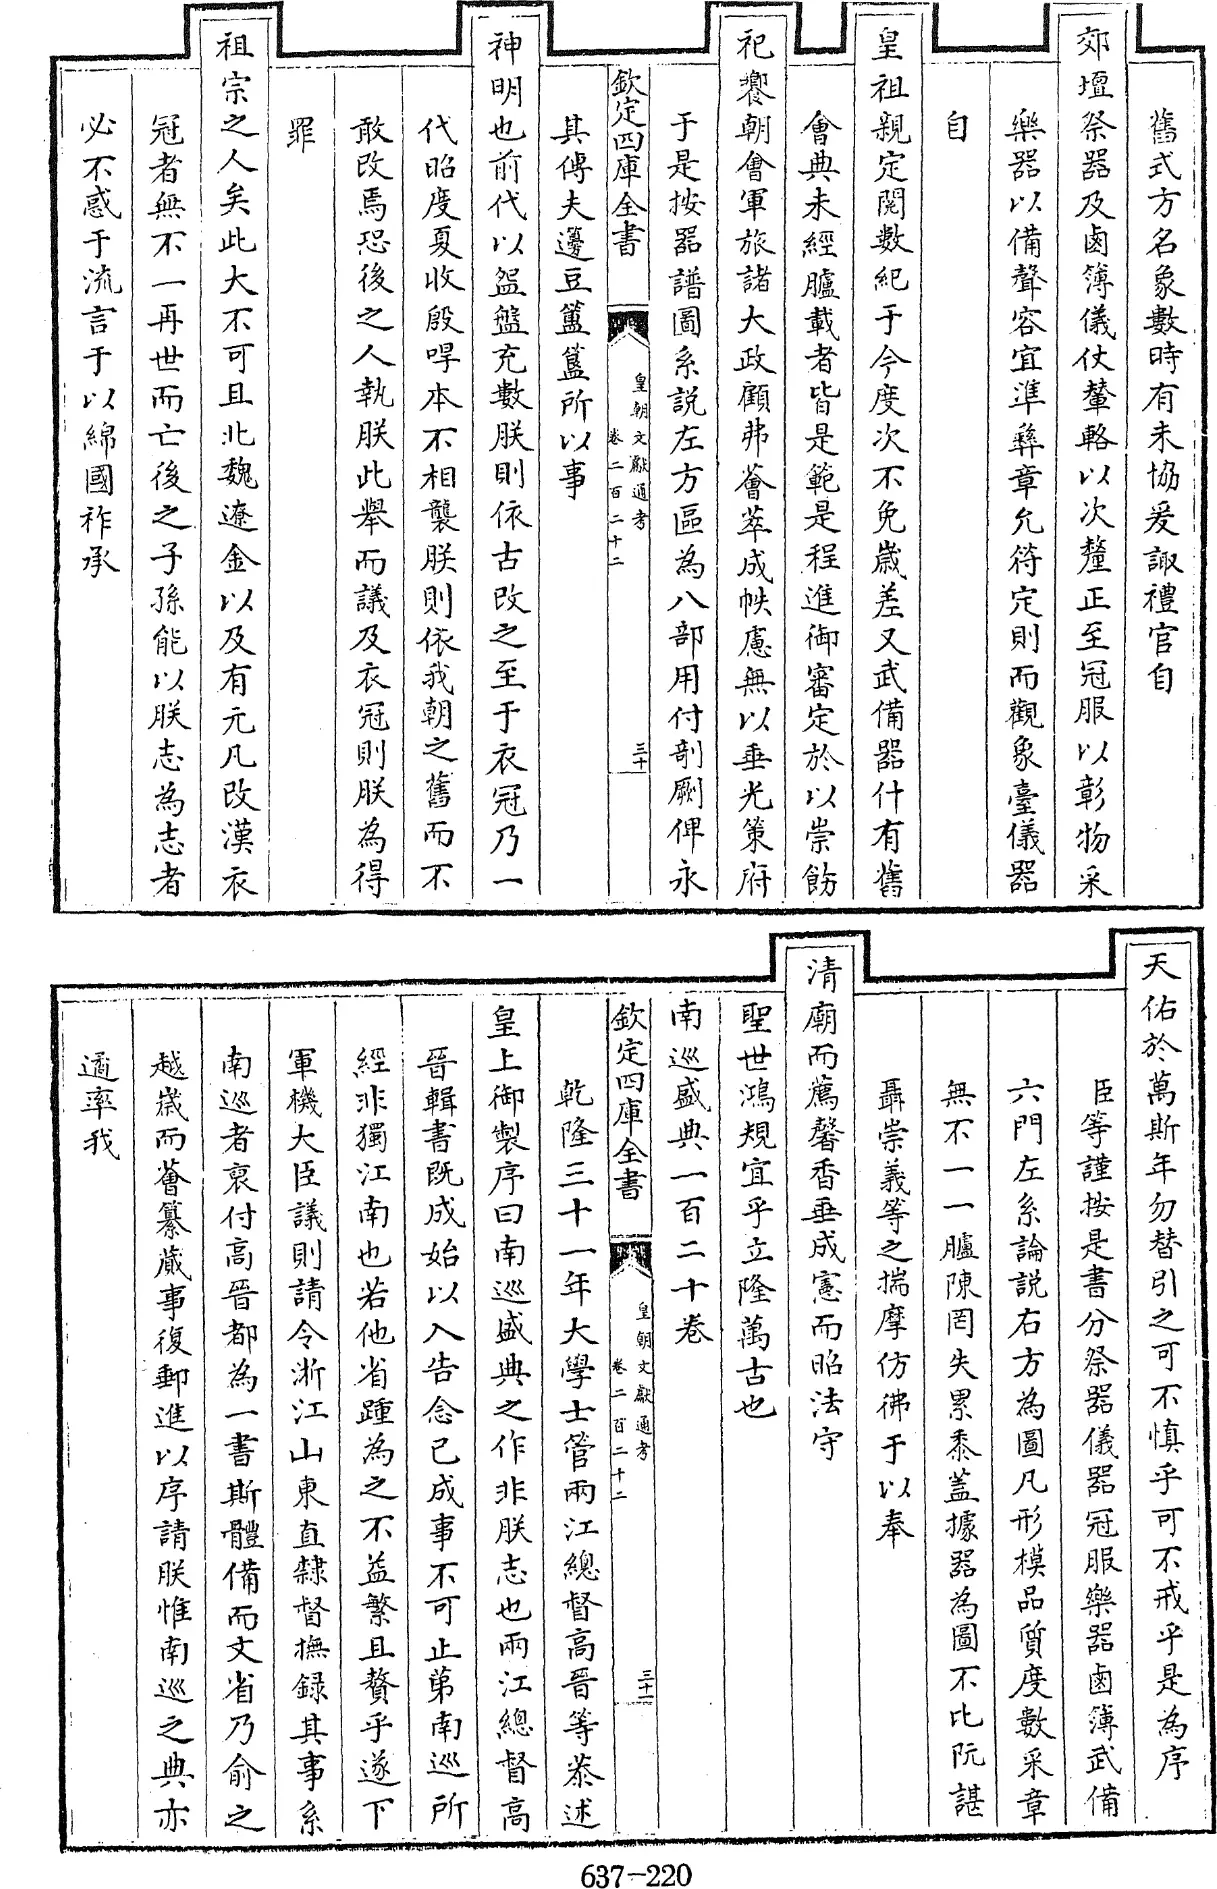 舊式方名象數時有未協爰諏禮官自
郊壇祭器及鹵簿儀仗輦輅以次釐正至冠服以彰物采
樂器以備聲容宜準彝章允符定則而觀象臺儀器
自
皇祖親定閱數紀于今度次不免歲差又武備器什有舊
會典未經臚載者皆是範是程進御審定於以崇飭
祀饗朝會軍旅諸大政顧弗薈萃成帙慮無以垂光策府
于是按器譜圖系説左方區為八部用付剞劂俾永
欽定四庫全書
皇朝文獻通考
卷二百二十二
三十
其傳夫籩豆簠簋所以事
神明也前代以盌盤充數朕則依古改之至于衣冠乃一
代昭度夏收殷哻本不相襲朕則依我朝之舊而不
敢改焉恐後之人執朕此舉而議及衣冠則朕為得
罪
祖宗之人矣此大不可且北魏遼金以及有元凡改漢衣
冠者無不一再世而亡後之子孫能以朕志為志者
必不惑于流言于以綿國祚承
天佑於萬斯年勿替引之可不慎乎可不戒乎是為序
臣等謹按是書分祭器儀器冠服樂器鹵簿武備
六門左系論説右方為圖凡形模品質度數采章
無不一一臚陳罔失累黍蓋據器為圖不比阮諶
聶崇義等之揣摩仿彿于以奉
清廟而薦馨香垂成憲而昭法守
聖世鴻規宜乎立隆萬古也
南巡盛典一百二十卷
欽定四庫全書
皇朝文獻通考
卷二百二十二
三十一
乾隆三十一年大學士管兩江總督高晉等恭述
皇上御製序曰南巡盛典之作非朕志也兩江總督高
晉輯書既成始以入告念已成事不可止第南巡所
經非獨江南也若他省踵為之不益繁且贅乎遂下
軍機大臣議則請令浙江山東直隸督撫録其事系
南巡者裒付高晉都為一書斯體備而文省乃俞之
越歲而薈纂蕆事復郵進以序請朕惟南巡之典亦
遹率我
637-220